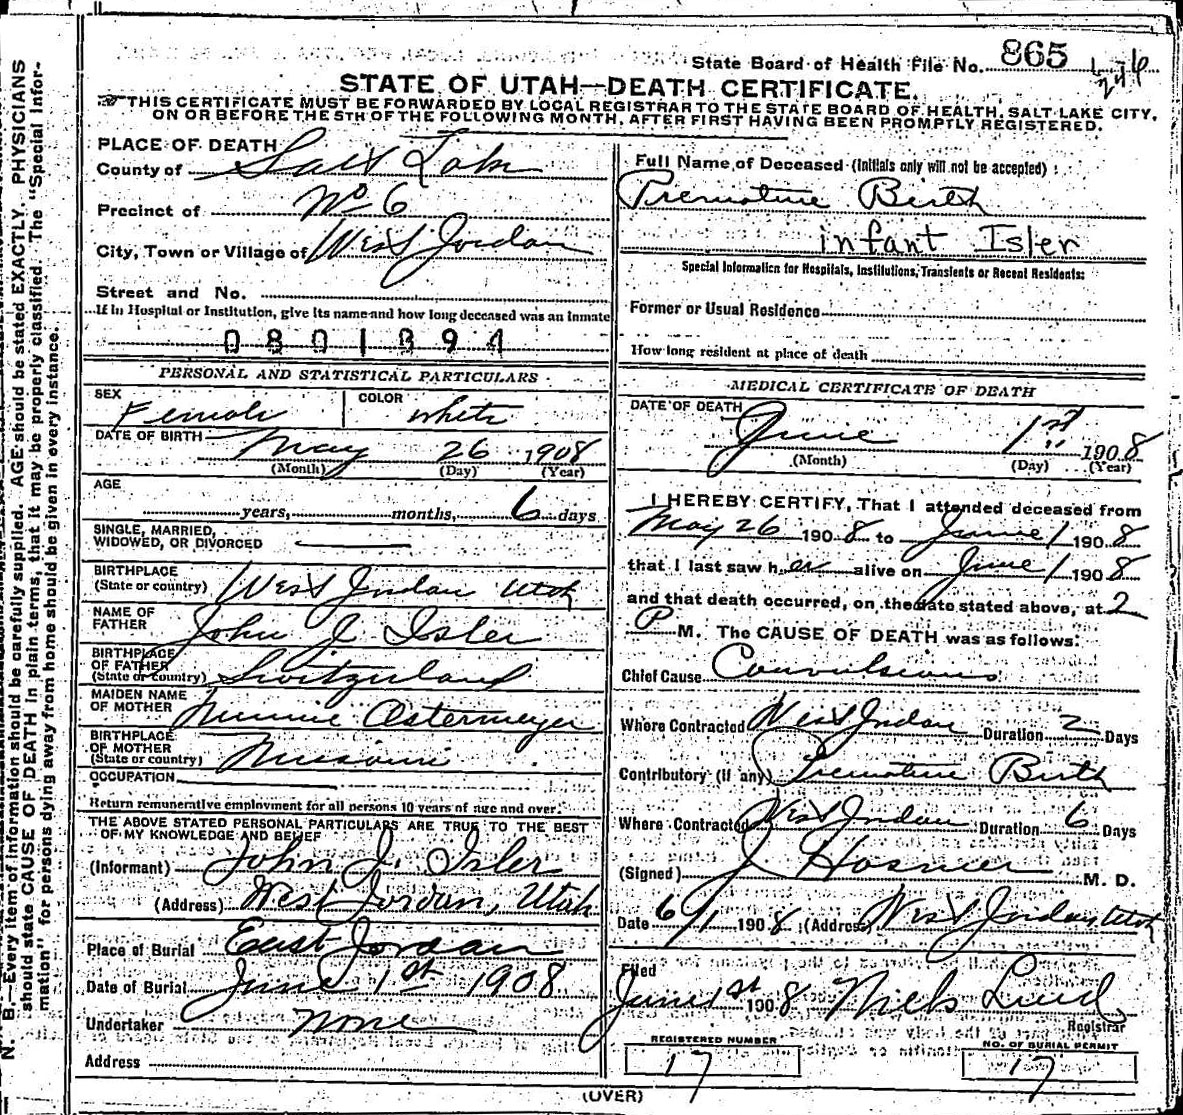 State Board of Health File No. 865
STATE OF UTAH—DEATH CERTIFICATE.
THIS CERTIFICATE MUST BE FORWARDED BY LOCAL REGISTRAR TO THE STATE BOARD OF HEALTH, SALT LAKE CITY,
ON OR BEFORE THE 5TH OF THE FOLLOWING MONTH, AFTER FIRST HAVING BEEN PROMPTLY REGISTERED.
PLACE OF DEATH
County of Salt Lake
Precinct of No 6
City, Town or Village of West Jordan
Street and No.
If in Hospital or Institution, give its name and how long deceased was an inmate
0801394
PERSONAL AND STATISTICAL PARTICULARS
SEX Female COLOR White
DATE OF BIRTH May 26 1908
(Month) (Day) (Year)
AGE
years, months, 6 days
SINGLE, MARRIED,
WIDOWED, OR DIVORCED
BIRTHPLACE
(State or country) West Jordan Utah
NAME OF
FATHER John J Isler
BIRTHPLACE
OF FATHER
(State or country) Switzerland
MAIDEN NAME
OF MOTHER Minnie Ostermeyer
BIRTHPLACE
OF MOTHER
(State or country) Missouri
OCCUPATION
Return remunerative employment for all persons 10 years of age and over.
THE ABOVE STATED PERSONAL PARTICULARS ARE TRUE TO THE BEST
OF MY KNOWLEDGE AND BELIEF
(Informant) John J. Isler
(Address) West Jordan, Utah
Place of Burial East Jordan
Date of Burial June 1st 1908
Undertaker None
Address
Full Name of Deceased (Initials only will not be accepted)
Premature Birth
infant Isler
Special Information for Hospitals, Institutions, Transients or Recent Residents:
Former or Usual Residence
How long resident at place of death
MEDICAL CERTIFICATE OF DEATH
DATE OF DEATH
June 1st 1908
(Month) (Day) (Year)
I HEREBY CERTIFY, That I attended deceased from
May 26 1908 to June 1 1908
that I last saw her alive on June 1 1908
and that death occurred, on the date stated above, at 2
P M. The CAUSE OF DEATH was as follows:
Chief Cause Convulsions
Where Contracted West Jordan Duration 2 Days
Contributory (if any) Premature Birth
Where Contracted West Jordan Duration 6 Days
(Signed) J Hosmer M. D.
Date 6/1 1908 (Address) West Jordan Utah
Filed
June 1st 1908 Niels Lind
Registrar
REGISTERED NUMBER NO. OF BURIAL PERMIT
17 17
(OVER)
N. B.—Every item of information should be carefully supplied. AGE should be stated EXACTLY. PHYSICIANS
should state CAUSE OF DEATH in plain terms, that it may be properly classified. The "Special Infor-
mation" for persons dying away from home should be given in every instance.